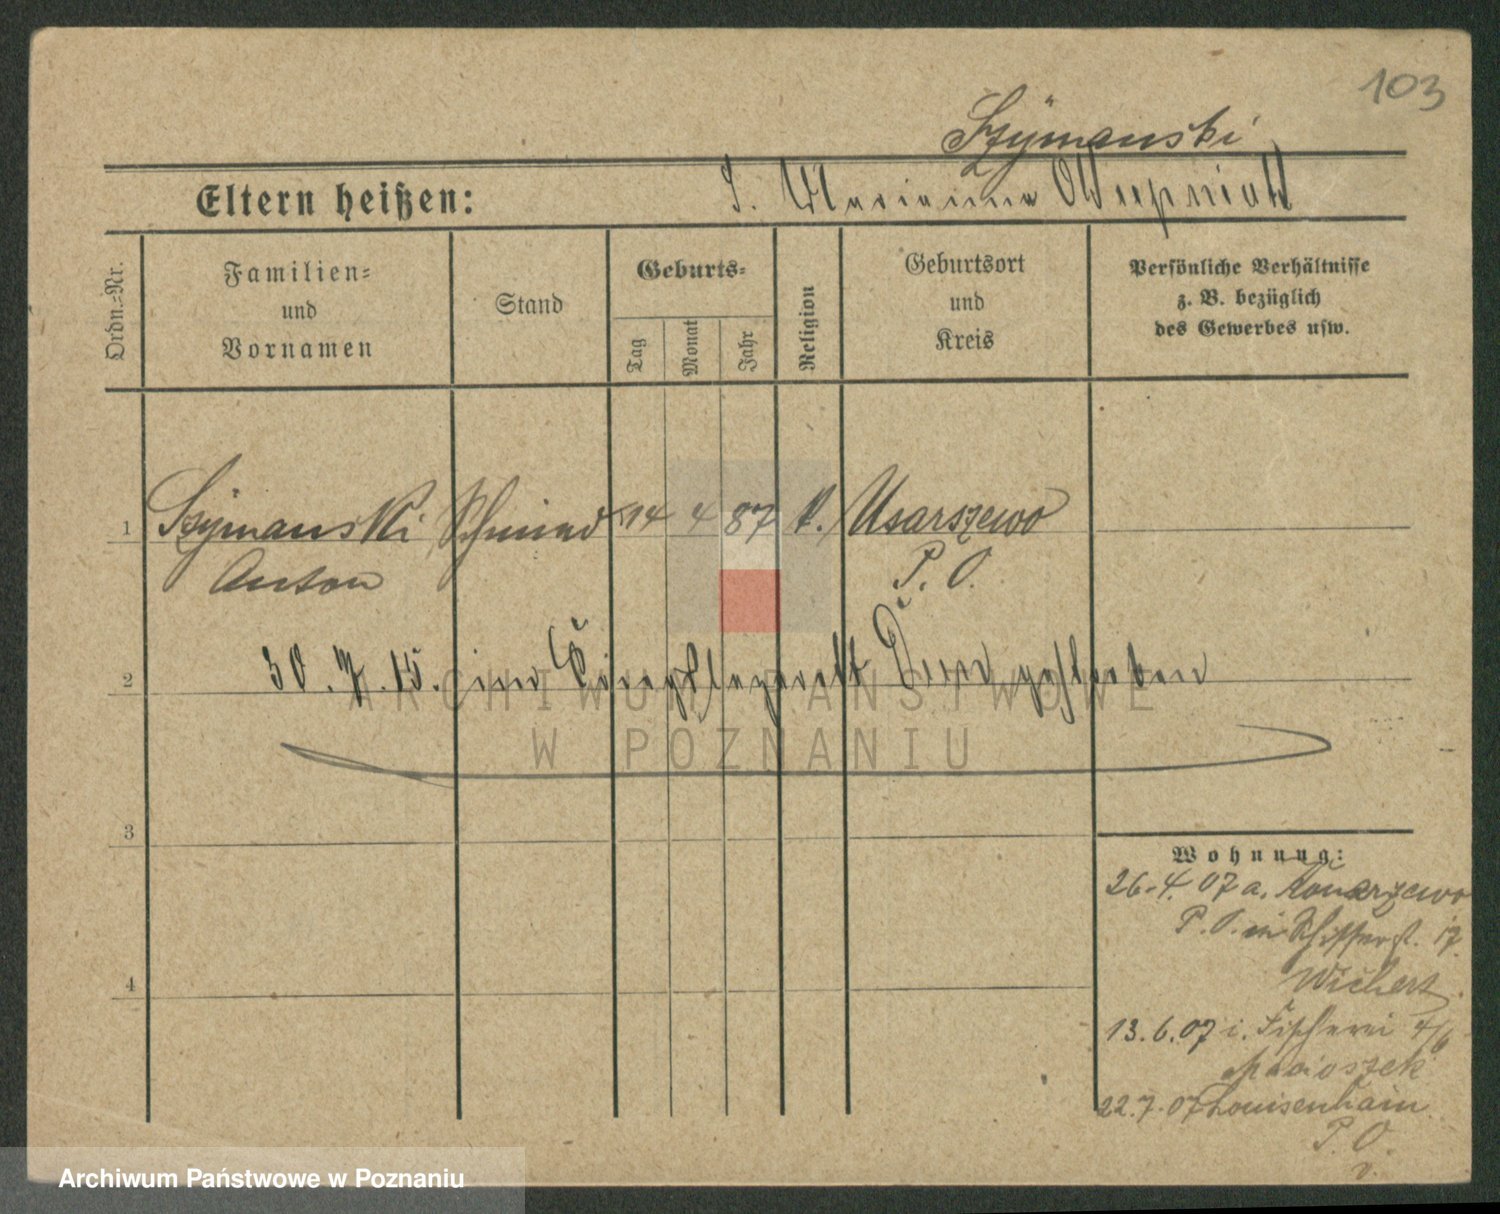 103
Szymanski
Eltern heißen: S. Marianna
Ordn.-Nr.
Familien-
und
Vornamen
Stand
Geburts-
Tag
Monat
Jahr
Religion
Geburtsort
und
Kreis
Persönliche Verhältnisse
z. B. bezüglich
des Gewerbes usw.
1 Szymanski Schmied 14 4 87 k. Usarszewo
Anton P. O.
2 30.7.15. im Kriegslazarett gestorben
3
Wohnung:
26.4.07 a. Konarzewo
P. O. in Schifferst. 17.
4
Wichert
13.6.07 i. Fischerei 4/6
Macioszek
22.7.07 Louisenhain
P. O.
v.
ARCHIWUM PAŃSTWOWE
W POZNANIU
Archiwum Państwowe w Poznaniu